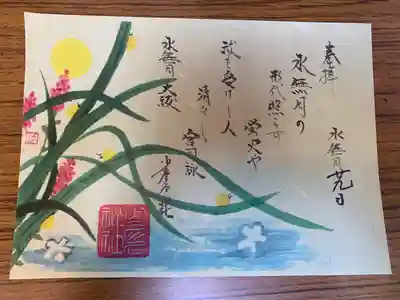 奉拝
水無月廿九日
水無月の
形代照らす
蛍火や
祓を受けし人
清々し
宮司詠
水無月大祓